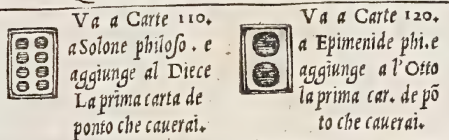 Va a Carte 110.
a Solone philoso. e
aggiunge al Diece
La prima carta de
ponto che cauerai.
Va a Carte 120.
a Epimenide phi. e
aggiunge a l'Otto
la prima car. de põ
to che cauerai.